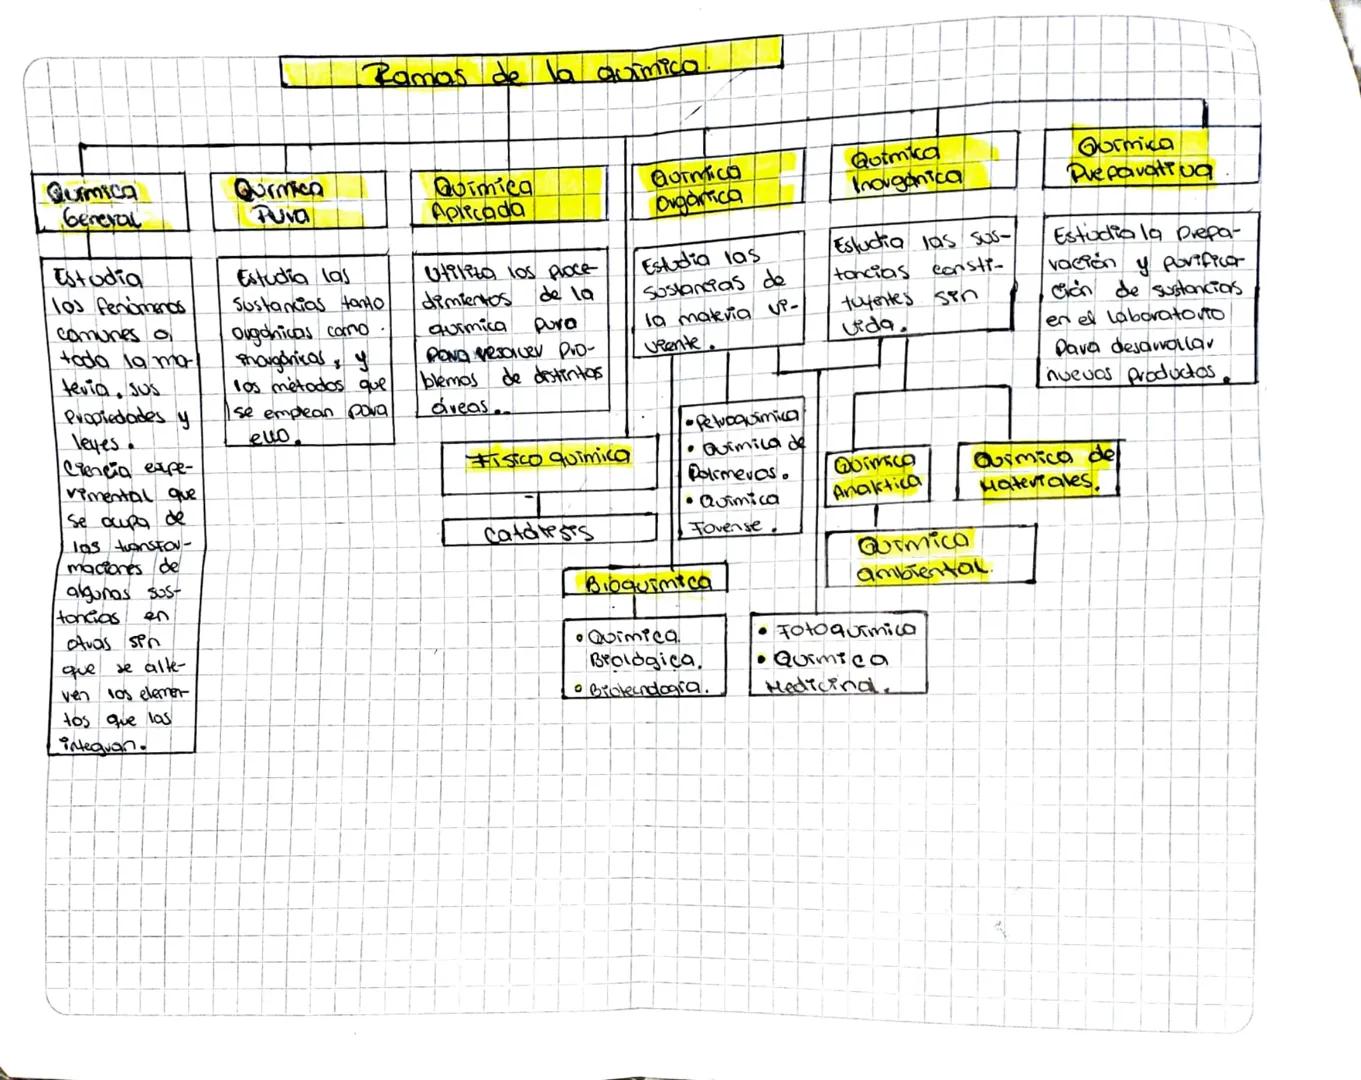 Ramas de la química.
Química
General
Química
Pura
Química
Aplicada
Química
Orgánica
Química
Inorgánica
Química
Preparativa
Estudia
los fenómenos
comunes a
toda la ma-
teria, sus
Propiedades y
leyes.
Ciencia expe-
rimental que
se ocupa de
las transfor-
maciones de
algunas sus-
tancias en
otras sin
que se alte-
ren los elemen-
tos que las
integran.
Estudia las
sustancias tanto
orgánicas como
inorgánicas, y
los métodos que
se emplean para
ello.
Utiliza los proce-
dimientos de la
química pura
para resolver pro-
blemas de distintas
áreas.
Estudia las
sustancias de
la materia vi-
viente.
Estudia las sus-
tancias consti-
tuyentes sin
vida.
Estudia la prepa-
ración y purifica-
ción de sustancias
en el laboratorio
para desarrollar
nuevos productos.
Físico química
Catálisis
• Petroquímica
• Química de
Polímeros.
• Química
Forense.
Química
Analítica
Química de
Materiales.
Química
ambiental.
Bioquímica
• Química
Biológica.
• Biotecnología.
• Fotoquímica
• Química
Medicinal.